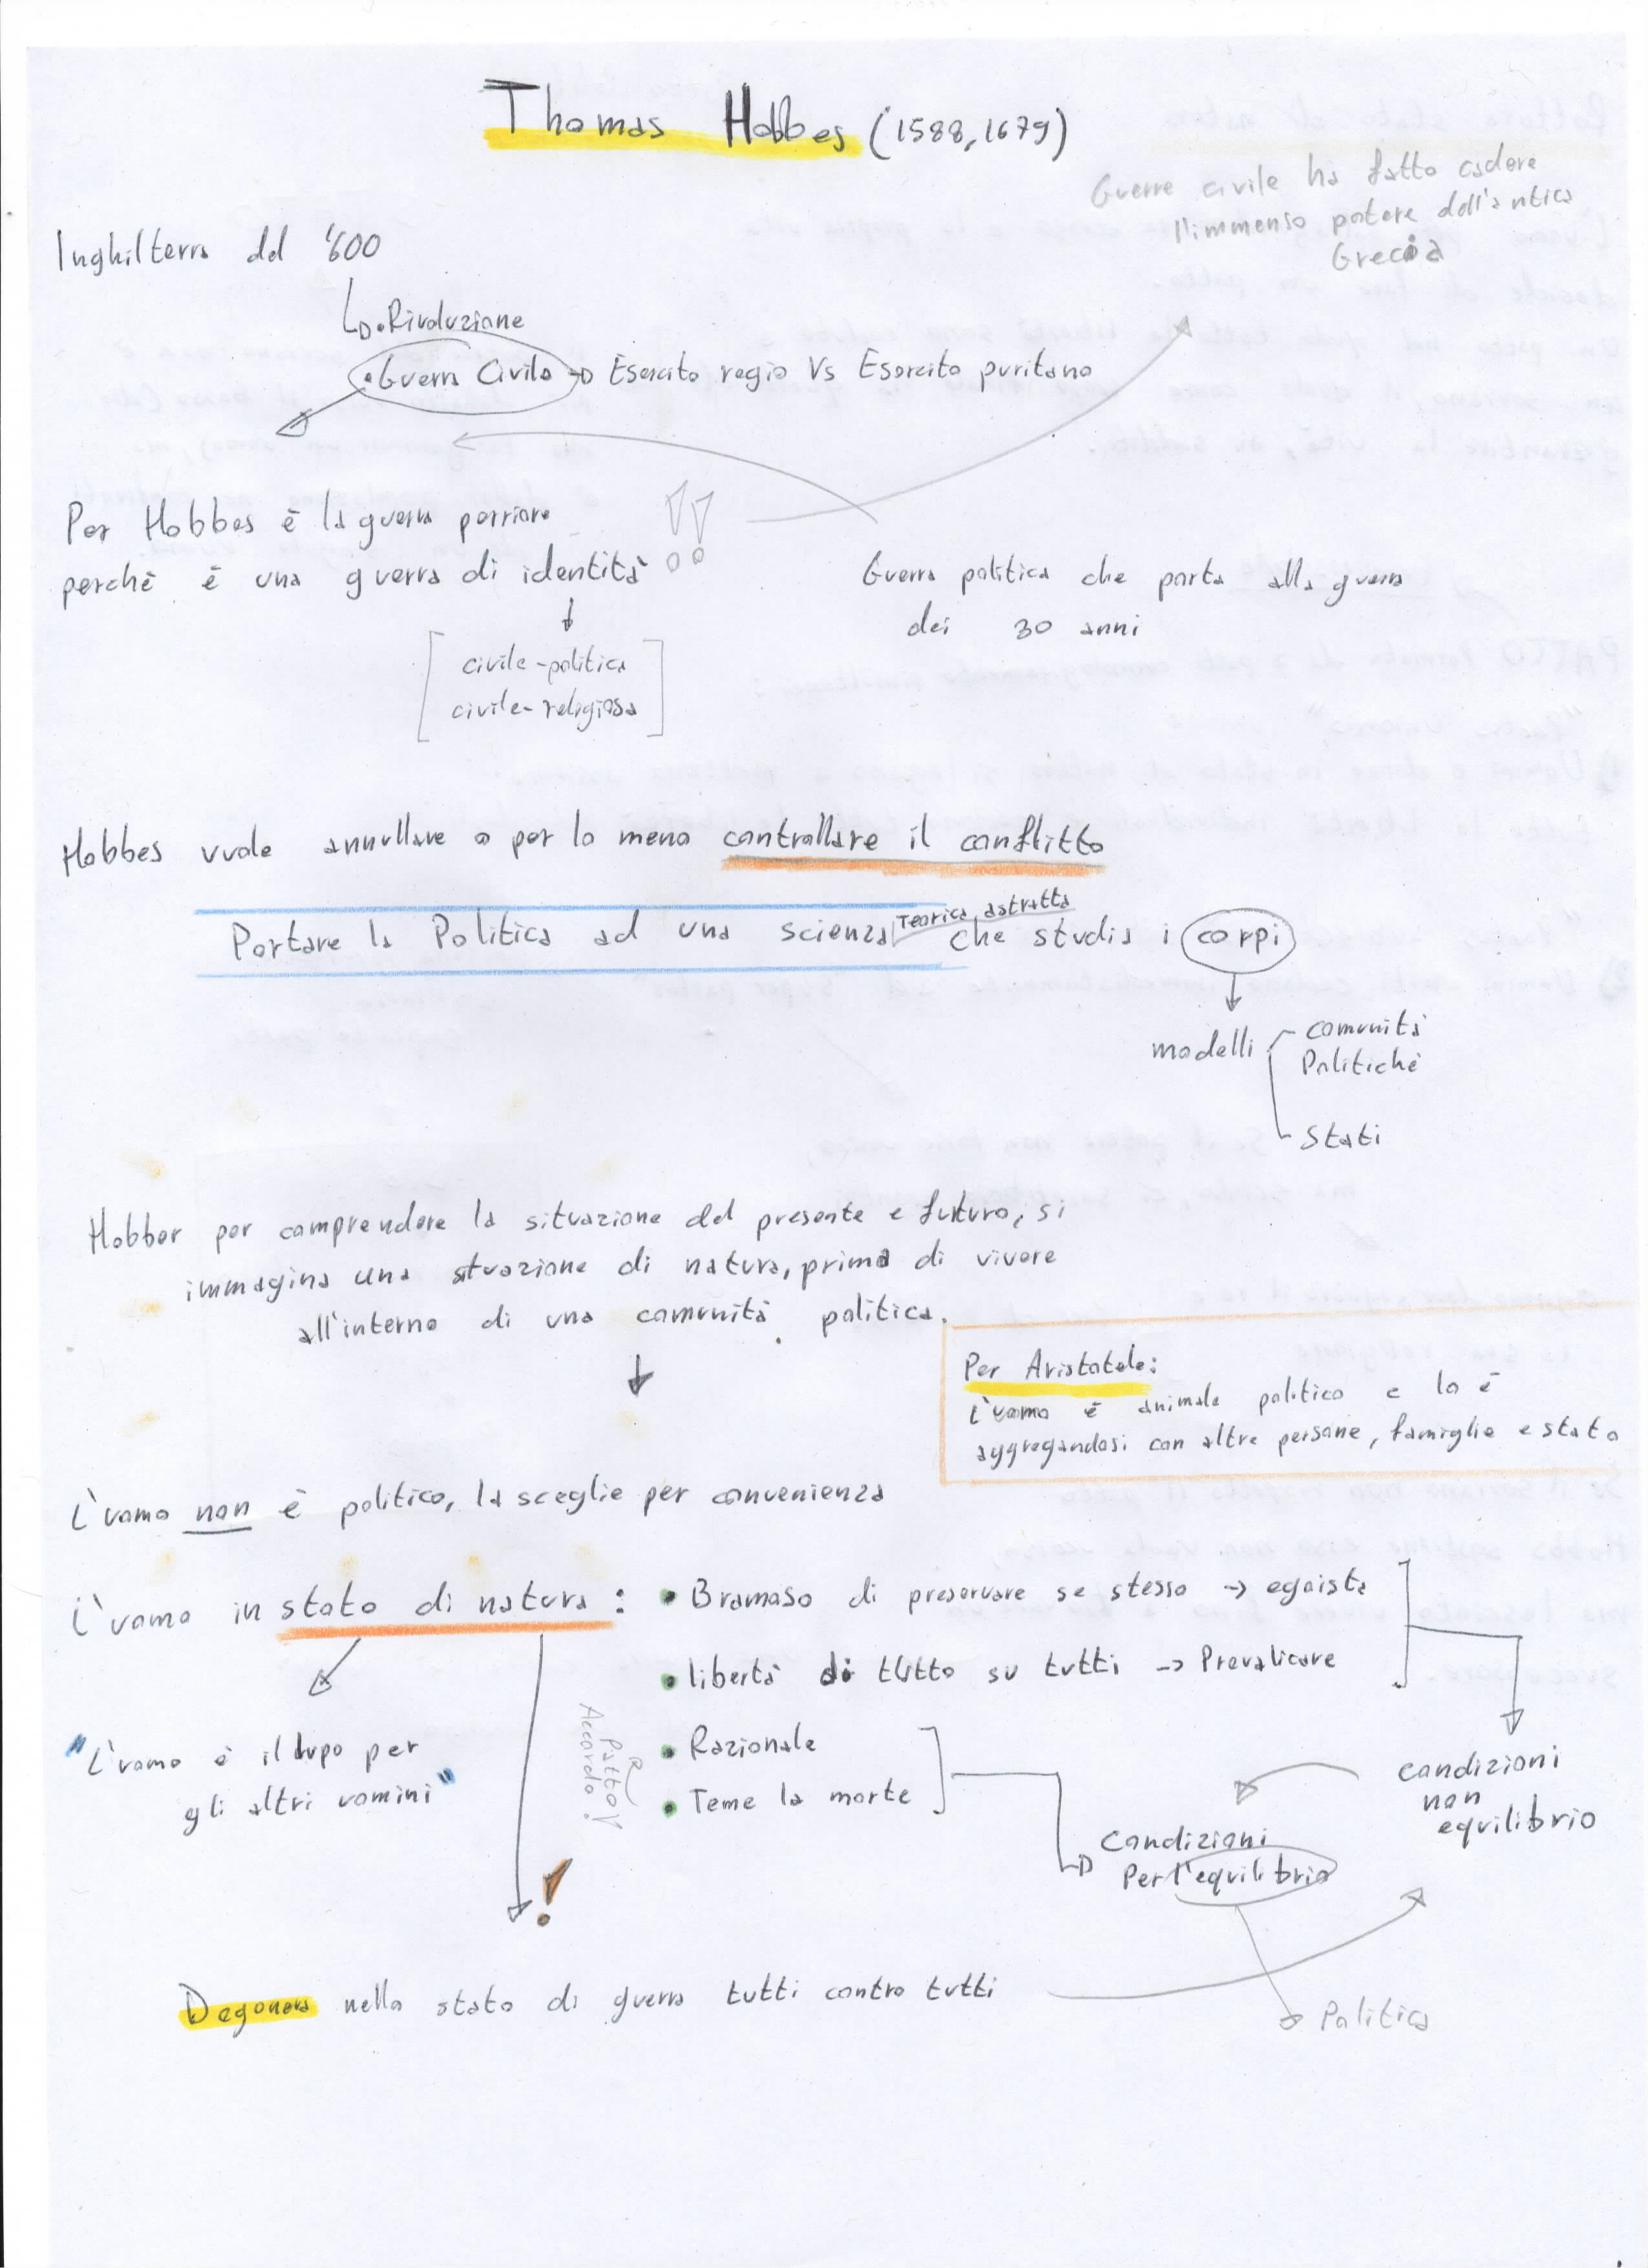 Thomas Hobbes (1588, 1679)
Guerre civile ha fatto cadere
l'immenso potere dell'antica
Grecia
Inghilterra del '600
• Rivoluzione
• Guerra Civile → Esercito regio Vs Esercito puritano
Per Hobbes è la guerra perriore
perchè è una guerra di identità !!
civile-politica
civile-religiosa
Guerra politica che porta alla guerra
dei 30 anni
Hobbes vuole annullare o per lo meno controllare il conflitto
Teorica, astratta
Portare la Politica ad una scienza che studia i corpi
modelli
comunità
Politiche
Stati
Hobber per comprendere la situazione del presente e futuro, si
immagina una stuazione di natura, prima di vivere
all'interno di una comunità politica.
Per Aristotele:
L'uomo è animale politico e lo è
aggregandosi con altre persone, famiglie e stato
L'uomo non è politico, la sceglie per convenienza
L'uomo in stato di natura :
• Bramoso di preservare se stesso → egoista
• libertà di tutto su tutti → Prevalicare
• Razionale
• Teme la morte
"L'uomo è il lupo per
gli altri uomini"
Patto
Accordo!
condizioni
non
equilibrio
Condizioni
Per l'equilibrio
!
Degenera nello stato di guerra tutti contro tutti
Politica